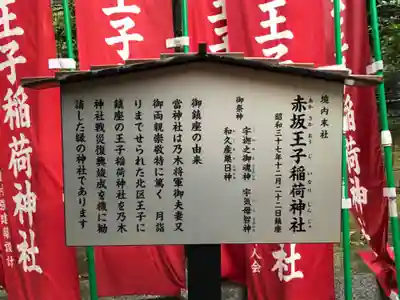 境内末社
赤坂王子稲荷神社
あかさかおうじいなりじんじゃ
昭和三十七年十二月二十二日鎮座
御祭神
宇迦之御魂神 宇気母智神
和久産巣日神
御鎮座の由来
當神社は乃木将軍御夫妻又
御両親崇敬特に篤く 月詣
りまでせられた北区王子に
鎮座の王子稲荷神社を乃木
神社戦災復興竣成を機に勧
請した縁の神社であります
王子稲荷神社
王子稲荷神社